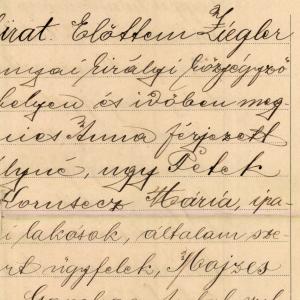 irat. Előttem Ziegler
nyai királyi közjegyző
helyen és időben meg-
nics Anna férjezett
lyné, ugy Petek
Kornsecz Mária, ipa-
i lakosok, általam sze-
rt ügyfelek, Majzes